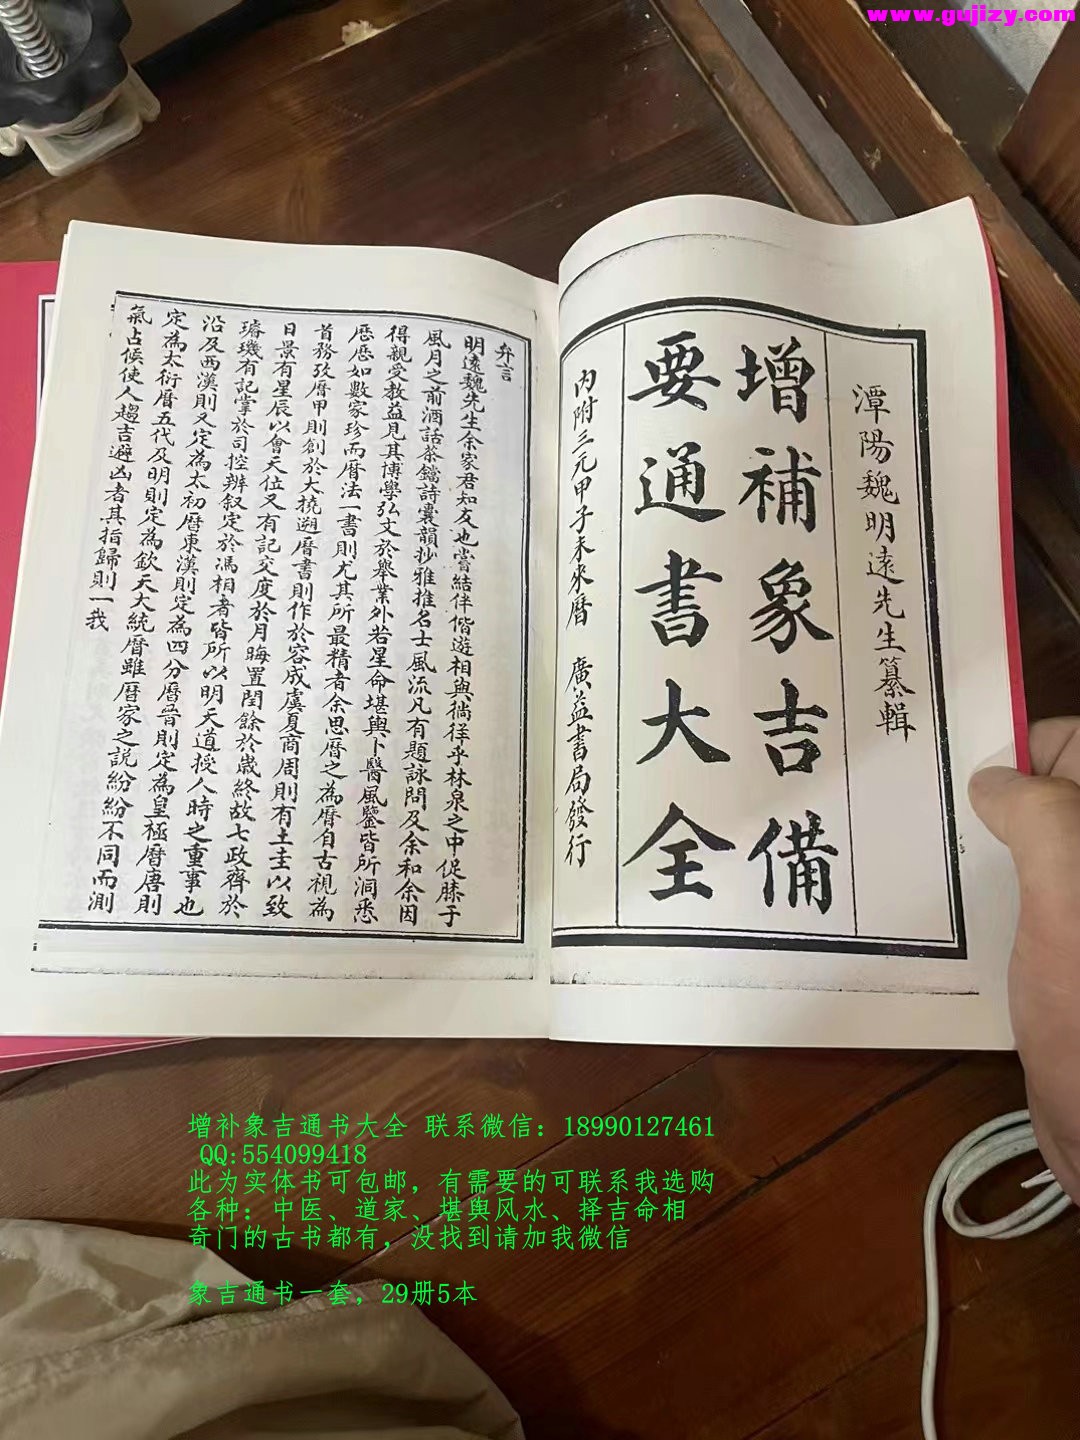 www.gujizy.com
潭陽魏明遠先生纂輯
增補象吉備
要通書大全
內附三元甲子未來曆 廣益書局發行
弁言
明遠魏先生余家君知友也嘗結伴偕遊相與徜徉乎林泉之中促膝于
風月之前酒話茶鐺詩囊韻抄雅推名士風流凡有題詠問及余和余因
得親受教益見其博學弘文於舉業外若星命堪輿卜醫風鑒皆所洞悉
歷歷如數家珍而曆法一書則尤其所最精者余思曆之為曆自古視為
首務攷曆甲則創於大撓遡曆書則作於容成虞夏商周則有土圭以致
日景有星辰以會天位又有記交度於月晦置閏餘於歲終故七政齊於
璿璣有記掌於司控辨叙定於馮相者皆所以明天道授人時之重事也
沿及西漢則又定為太初曆東漢則定為四分曆晉則定為皇極曆唐則
定為太衍曆五代及明則定為欽天大統曆雖曆家之說紛紛不同而測
氣占候使人趨吉避凶者其指歸則一我
增补象吉通书大全 联系微信：18990127461
QQ:554099418
此为实体书可包邮，有需要的可联系我选购
各种：中医、道家、堪舆风水、择吉命相
奇门的古书都有，没找到请加我微信
象吉通书一套，29册5本